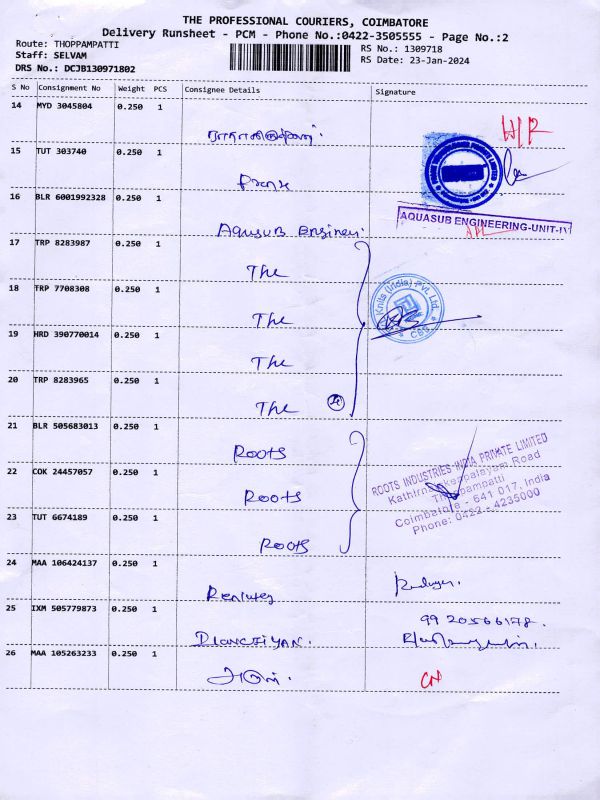 THE PROFESSIONAL COURIERS, COIMBATORE
Delivery Runsheet - PCM - Phone No.:0422-3505555 - Page No.:2
Route: THOPPAMPATTI
RS No.: 1309718
Staff: SELVAM
RS Date: 23-Jan-2024
DRS No.: DCJB130971802
S No Consignment No Weight PCS Consignee Details Signature
14 MYD 3045804 0.250 1
H/R
15 TUT 303740 0.250 1
16 BLR 6001992328 0.250 1 Aquasub
AQUASUB ENGINEERING-UNIT-IV
17 TRP 8283987 0.250 1 The
18 TRP 7708308 0.250 1 The
Knits (India) Pvt. Ltd.
CBE
19 HRD 390770014 0.250 1 The
20 TRP 8283965 0.250 1 The
21 BLR 505683013 0.250 1 Roots
ROOTS INDUSTRIES INDIA PRIVATE LIMITED
22 COK 24457057 0.250 1 Roots
Road
Thoppampatti
Coimbatore - 641 017, India
Phone: 0422 - 4235000
23 TUT 6674189 0.250 1 Roots
24 MAA 106424137 0.250 1
25 IXM 505779873 0.250 1
99 20566178.
26 MAA 105263233 0.250 1